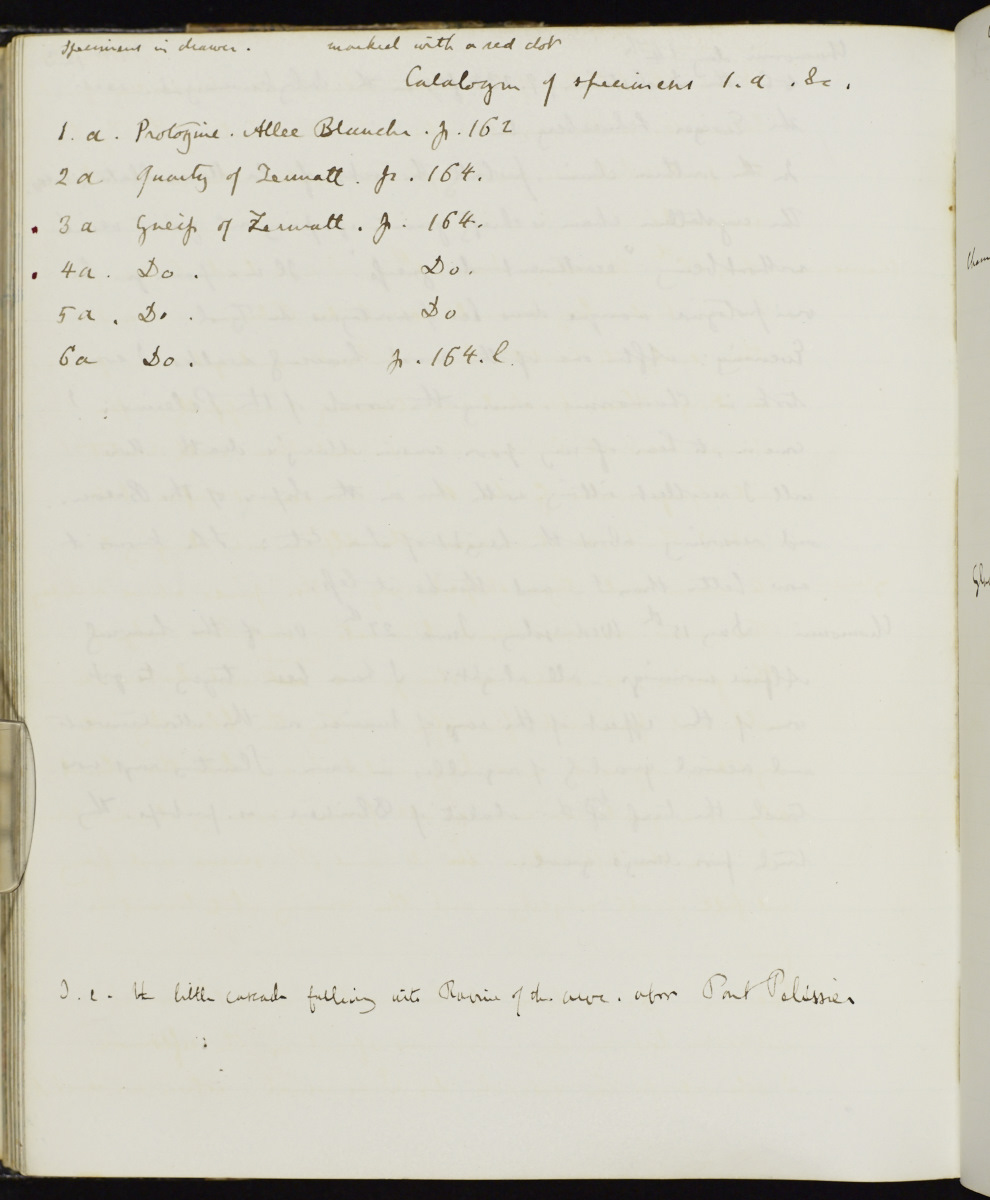 specimens in drawer. marked with a red dot
Catalogue of specimens 1. a. &c.
1. a. Protogine. Allee Blanche. p. 162
2 a Quartz of Zermatt. p. 164.
3 a Gneiss of Zermatt. p. 164.
4a. Do. Do.
5 a. Do. Do
6a Do. p. 164. l.
little cascade falling into Ravine of the arve. above Pont Pelissier